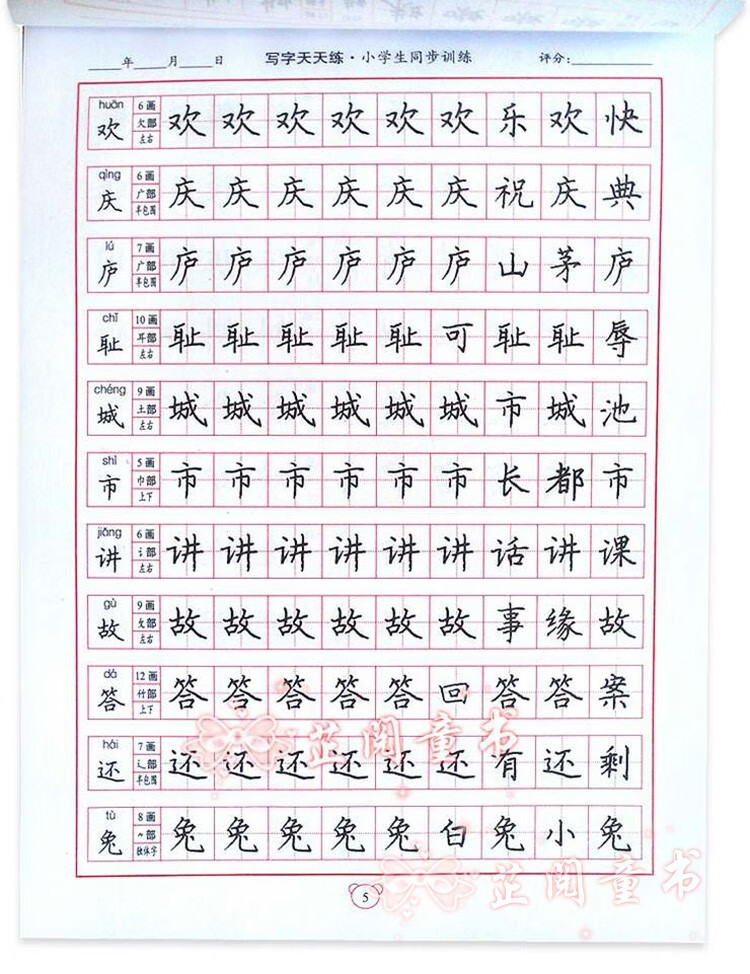 ____年____月____日 写字天天练·小学生同步训练 评分:________
huān 6画 欠部 左右 欢 欢 欢 欢 欢 欢 欢 乐 欢 快
qìng 6画 广部 半包围 庆 庆 庆 庆 庆 庆 庆 祝 庆 典
lú 7画 广部 半包围 庐 庐 庐 庐 庐 庐 庐 山 茅 庐
chǐ 10画 耳部 左右 耻 耻 耻 耻 耻 耻 可 耻 耻 辱
chéng 9画 土部 左右 城 城 城 城 城 城 城 市 城 池
shì 5画 巾部 上下 市 市 市 市 市 市 市 长 都 市
jiǎng 6画 讠部 左右 讲 讲 讲 讲 讲 讲 讲 话 讲 课
gù 9画 攵部 左右 故 故 故 故 故 故 故 事 缘 故
dá 12画 竹部 上下 答 答 答 答 答 答 回 答 答 案
hái 7画 辶部 半包围 还 还 还 还 还 还 还 有 还 剩
tù 8画 ⺈部 独体字 兔 兔 兔 兔 兔 兔 白 兔 小 兔
芷阅童书
芷阅童书
5